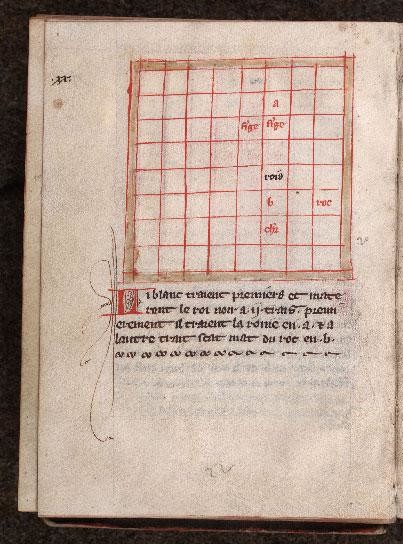 .xx.
a
fi'ge fi'ge
rois
b roc
chr
Li blanc traient premiers et mate
ront le roi noir . a . ij . trais . premi
erement . il traient la roine en . a . z a
lautre trait seat mat du roc en . b .